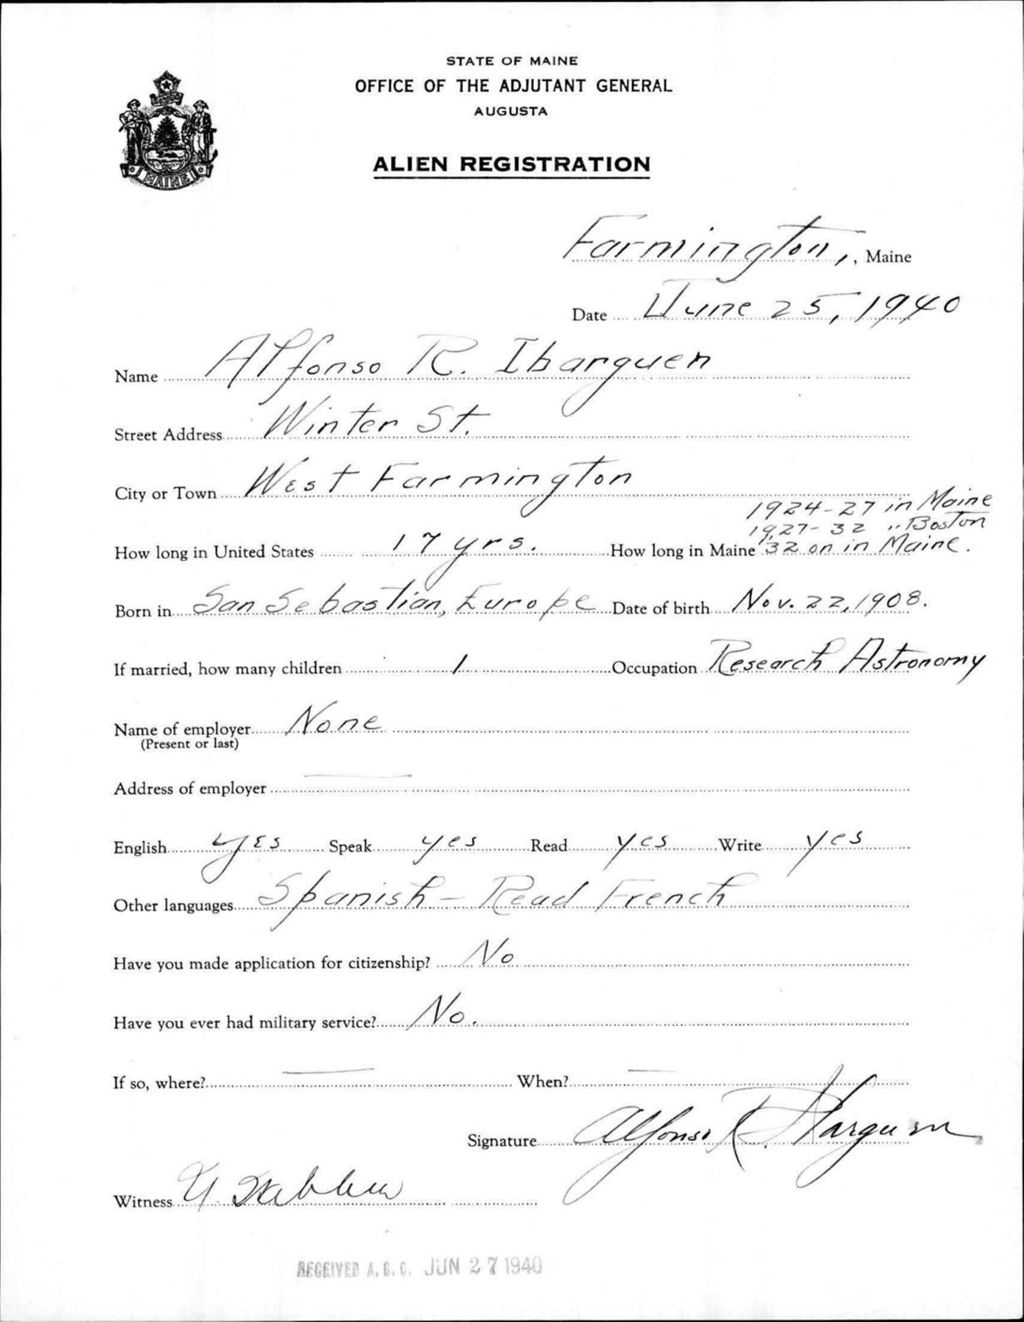 STATE OF MAINE
OFFICE OF THE ADJUTANT GENERAL
AUGUSTA
MAINE
ALIEN REGISTRATION
Farmington, , Maine
Date June 25, 1940
Name Alfonso R. Ibarguen
Street Address Winter St.
City or Town West Farmington
1924-27 in Maine
1927-32 " Boston
How long in United States 17 yrs. How long in Maine '32 on in Maine.
Born in San Sebastian, Europe Date of birth Nov. 22, 1908.
If married, how many children 1 Occupation Research Astronomy
Name of employer None
(Present or last)
Address of employer —
English yes Speak yes Read yes Write yes
Other languages Spanish - Read French
Have you made application for citizenship? No
Have you ever had military service? No.
If so, where? — When? —
Signature Alfonso R. Ibarguen
Witness
RECEIVED A. G. O. JUN 27 1940